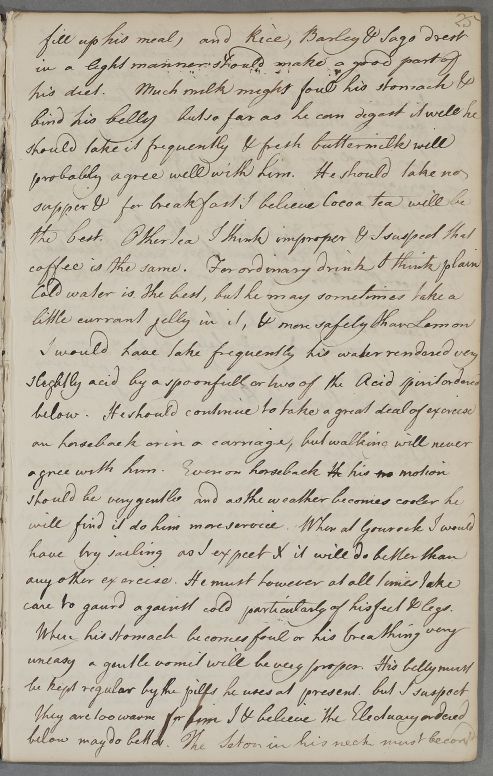 25
fill up his meal, and Rice, Barley & Sago drest
in a light manner should make a good part of
his diet. Much milk might foul his stomach &
bind his belly but so far as he can digest it well he
should take it frequently & fresh buttermilk will
probably agree well with him. He should take no
supper & for breakfast I believe Cocoa tea will be
the best. Other tea I think improper & I suspect that
coffee is the same. For ordinary drink I think plain
Cold water is the best, but he may sometimes take a
little currant jelly in it, & more safely than Lemon
I would have take frequently his water rendered very
slightly acid by a spoonfull or two of the Acid spirit ordered
below. He should continue to take a great deal of exercise
on horseback or in a carriage, but walking will never
agree with him. Even on horseback his motion
should be very gentle and as the weather becomes cooler he
will find it do him more service. When at Gourock I would
have try sailing as I expect it will do better than
any other exercise. He must however at all times take
care to gaurd against cold particularly of his feet & legs.
When his stomach becomes foul or his breathing very
uneasy a gentle vomit will be very proper. His belly must
be kept regular by the pills he uses at present. but I suspect
they are too warm for him I believe the Electuary ordered
below may do better. The Seton in his neck must be